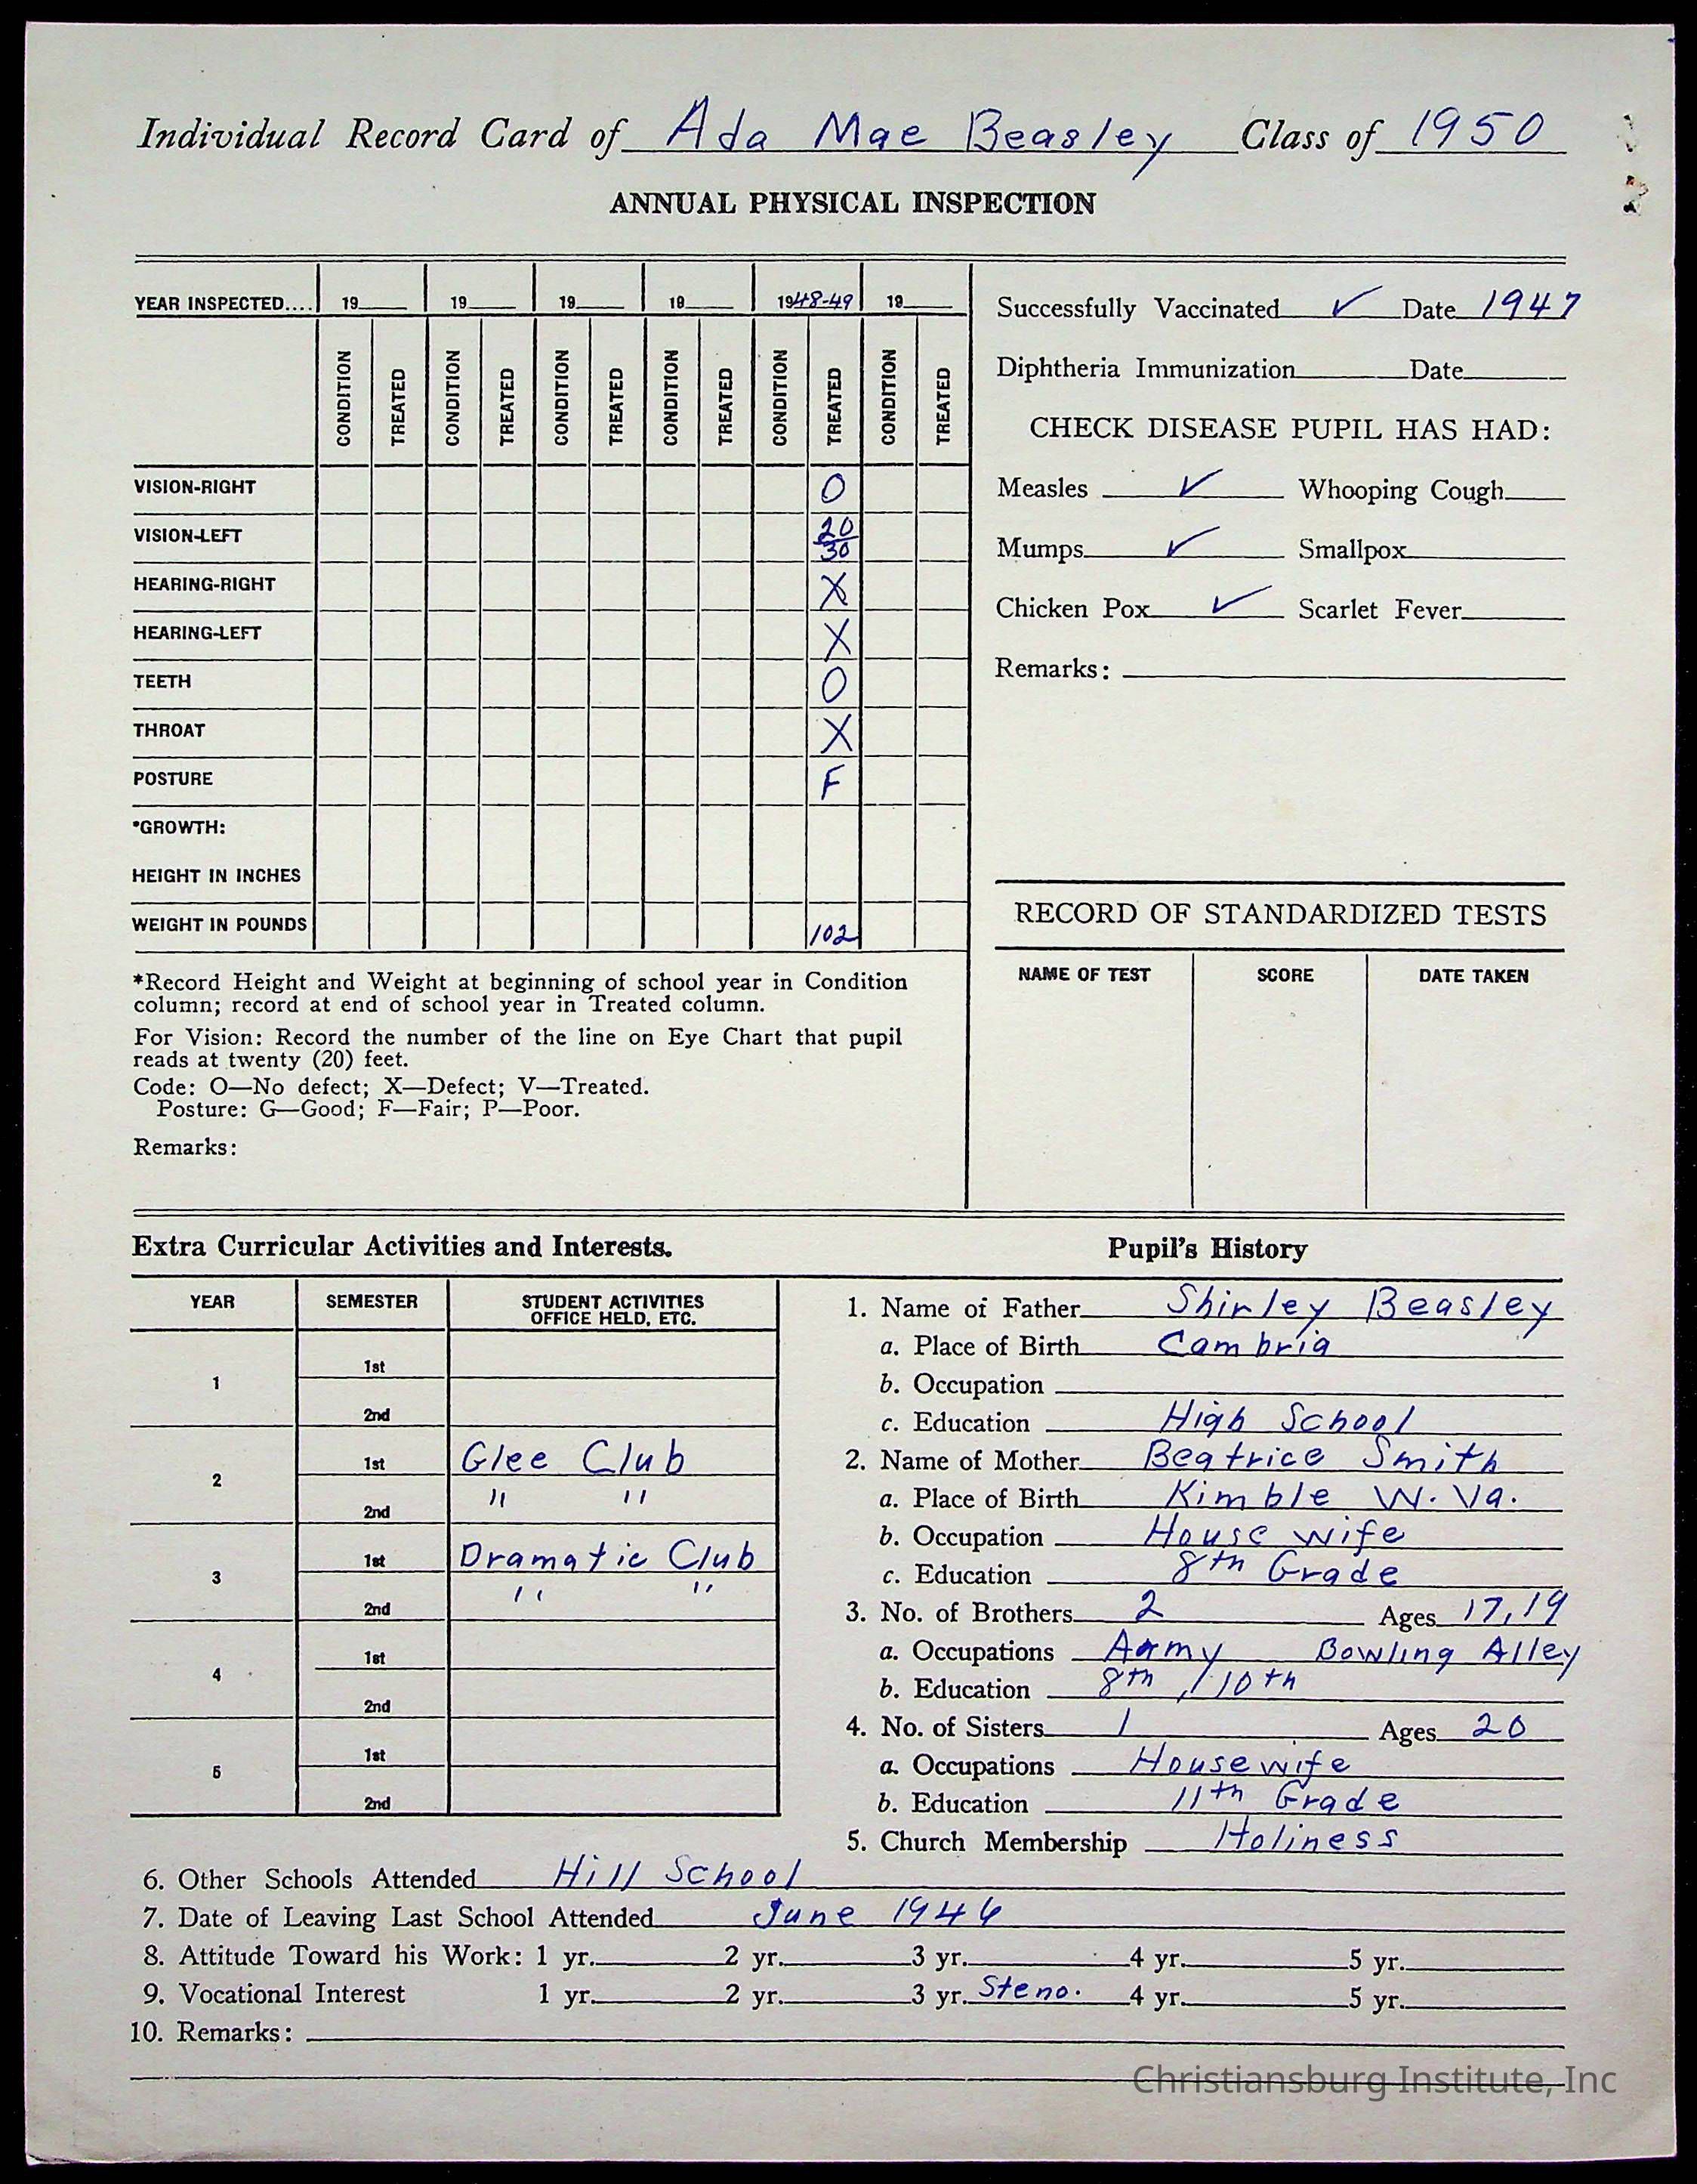 Individual Record Card of Ada Mae Beasley Class of 1950
ANNUAL PHYSICAL INSPECTION
YEAR INSPECTED.... 19 19 19 19 1948-49 19
CONDITION TREATED CONDITION TREATED CONDITION TREATED CONDITION TREATED CONDITION TREATED CONDITION TREATED
VISION-RIGHT O
VISION-LEFT 20/30
HEARING-RIGHT X
HEARING-LEFT X
TEETH O
THROAT X
POSTURE F
*GROWTH:
HEIGHT IN INCHES
WEIGHT IN POUNDS 102
*Record Height and Weight at beginning of school year in Condition
column; record at end of school year in Treated column.
For Vision: Record the number of the line on Eye Chart that pupil
reads at twenty (20) feet.
Code: O—No defect; X—Defect; V—Treated.
Posture: G—Good; F—Fair; P—Poor.
Remarks:
Successfully Vaccinated ✓ Date 1947
Diphtheria Immunization Date
CHECK DISEASE PUPIL HAS HAD:
Measles ✓ Whooping Cough
Mumps ✓ Smallpox
Chicken Pox ✓ Scarlet Fever
Remarks:
RECORD OF STANDARDIZED TESTS
NAME OF TEST SCORE DATE TAKEN
Extra Curricular Activities and Interests.
YEAR SEMESTER STUDENT ACTIVITIES
OFFICE HELD, ETC.
1 1st
2nd
2 1st Glee Club
2nd " "
3 1st Dramatic Club
2nd " "
4 1st
2nd
5 1st
2nd
Pupil's History
1. Name of Father Shirley Beasley
a. Place of Birth Cambria
b. Occupation
c. Education High School
2. Name of Mother Beatrice Smith
a. Place of Birth Kimble W. Va.
b. Occupation House wife
c. Education 8th Grade
3. No. of Brothers 2 Ages 17, 19
a. Occupations Army Bowling Alley
b. Education 8th / 10th
4. No. of Sisters 1 Ages 20
a. Occupations Housewife
b. Education 11th Grade
5. Church Membership Holiness
6. Other Schools Attended Hill School
7. Date of Leaving Last School Attended June 1946
8. Attitude Toward his Work: 1 yr. 2 yr. 3 yr. 4 yr. 5 yr.
9. Vocational Interest 1 yr. 2 yr. 3 yr. Steno. 4 yr. 5 yr.
10. Remarks:
Christiansburg Institute, Inc